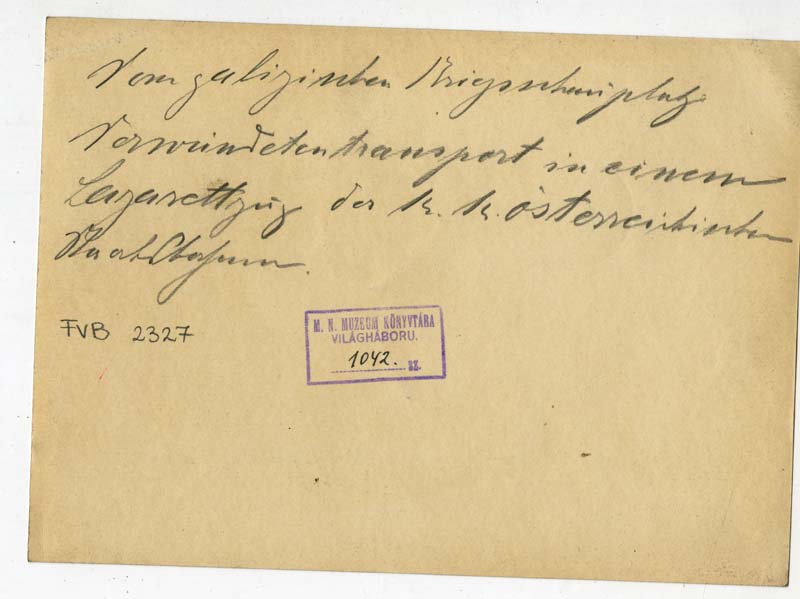 Vom galizischen Kriegsschauplatz
Verwundetentransport in einem
Lazarettzug der k. k. österreichischen
Staatsbahnen.
FVB 2327
M. N. MUZEUM KÖNYVTÁRA
VILÁGHÁBORU.
1042. SZ.